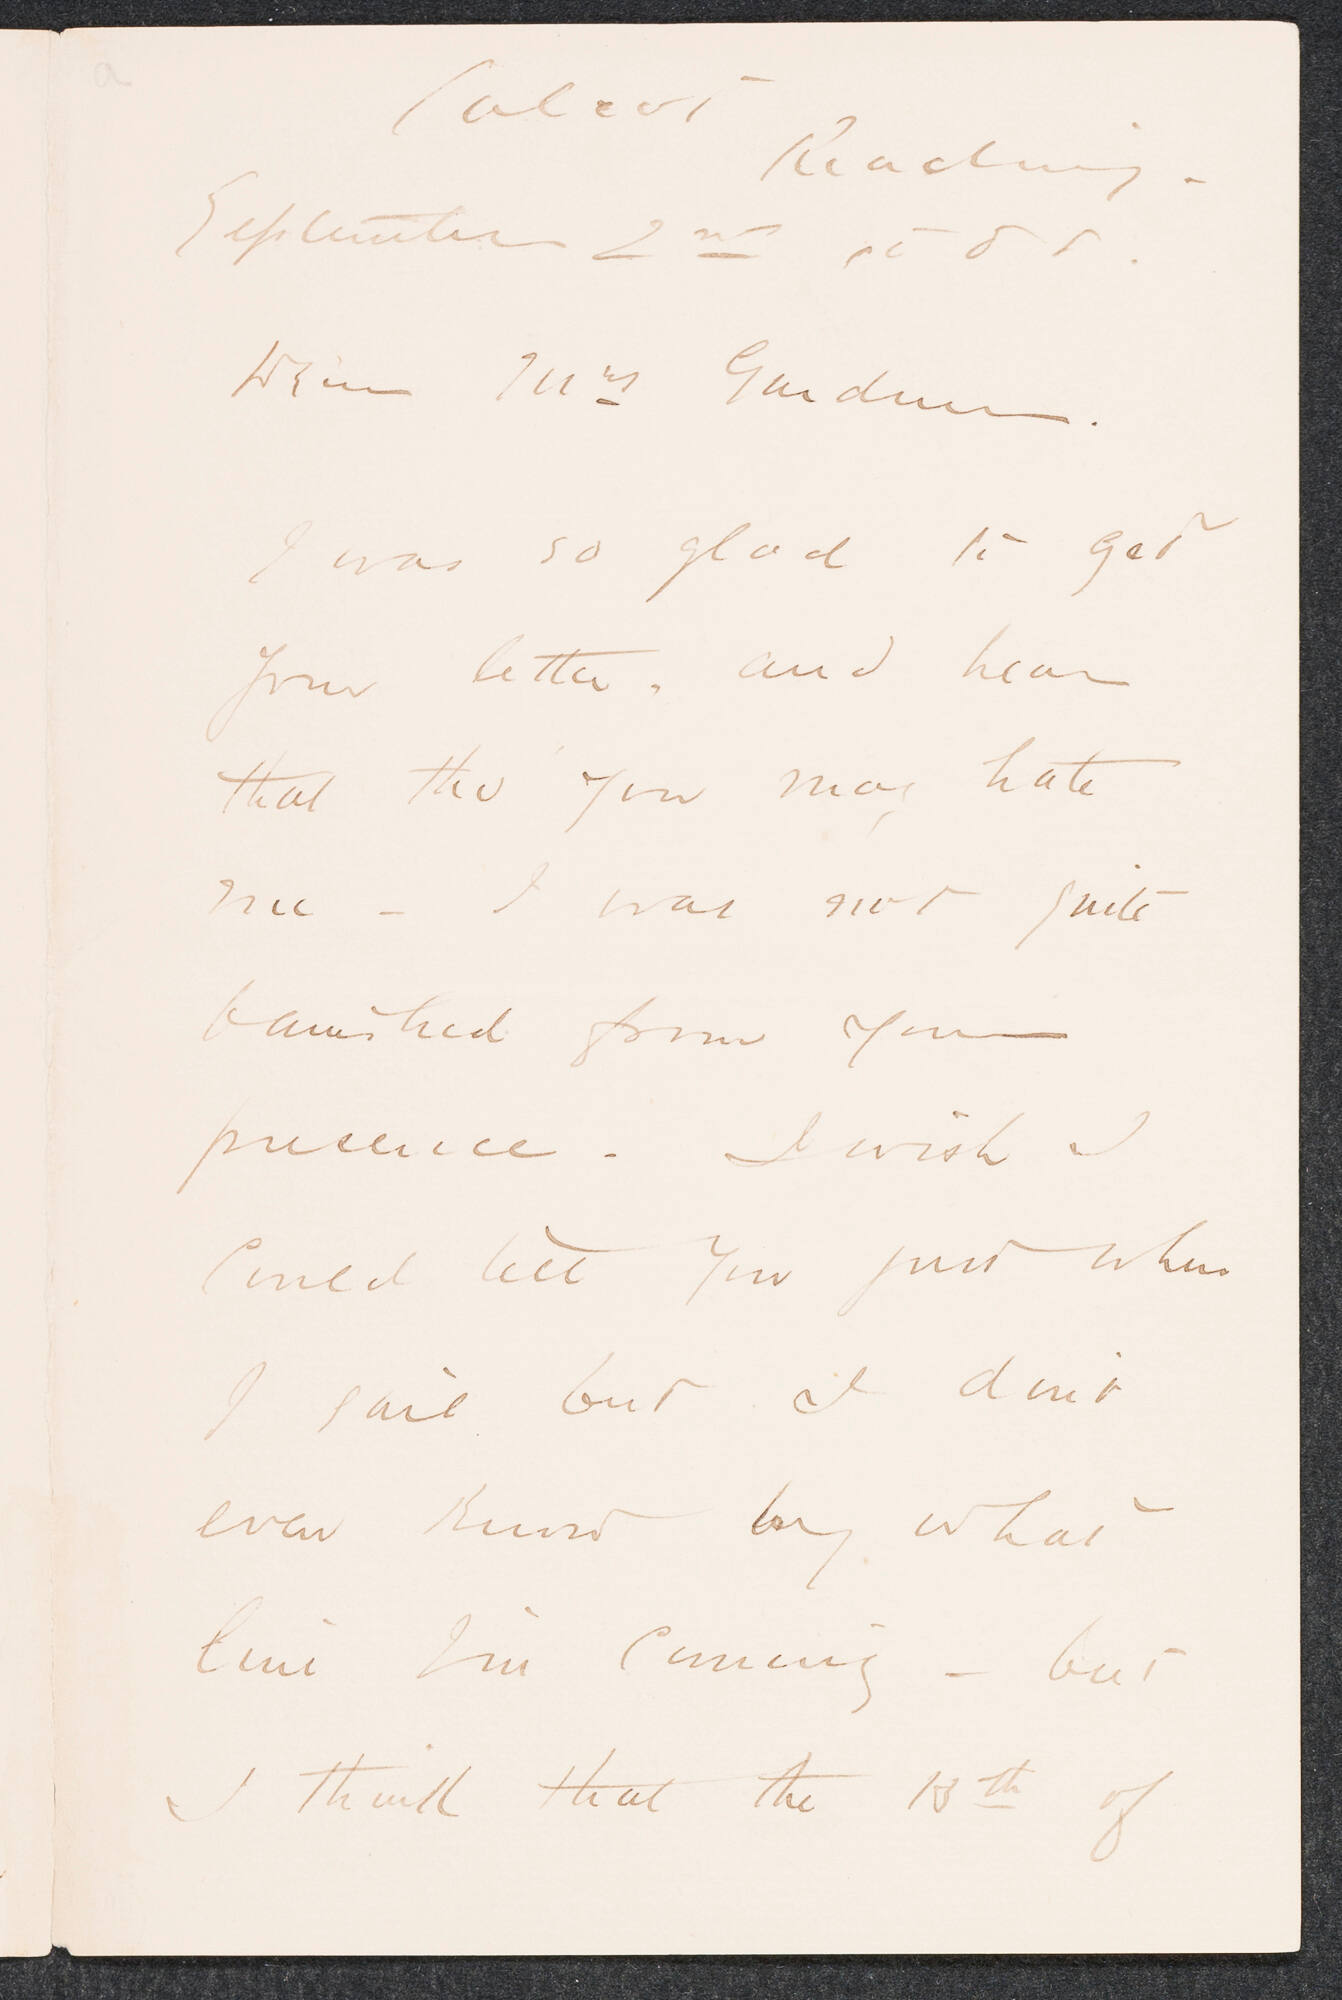 Calcot
Reading.
September 2nd 1888.
Dear Mrs Gardner.
I was so glad to get
your letter. and hear
that tho' you may hate
me - I was not quite
banished from your
presence. I wish I
could tell you just when
I sail but I don't
even know by what
line I'm coming - but
I think that the 13th of